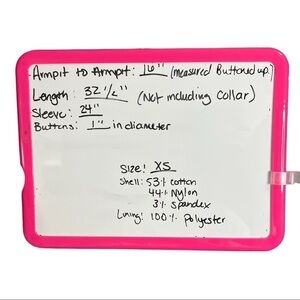 Armpit to Armpit: 16" (measured Buttoned up)
Length: 32 1/2" (Not including Collar)
Sleeve: 24"
Buttons: 1" in diameter
Size: XS
Shell: 53% cotton
44% Nylon
3% spandex
Lining: 100% polyester